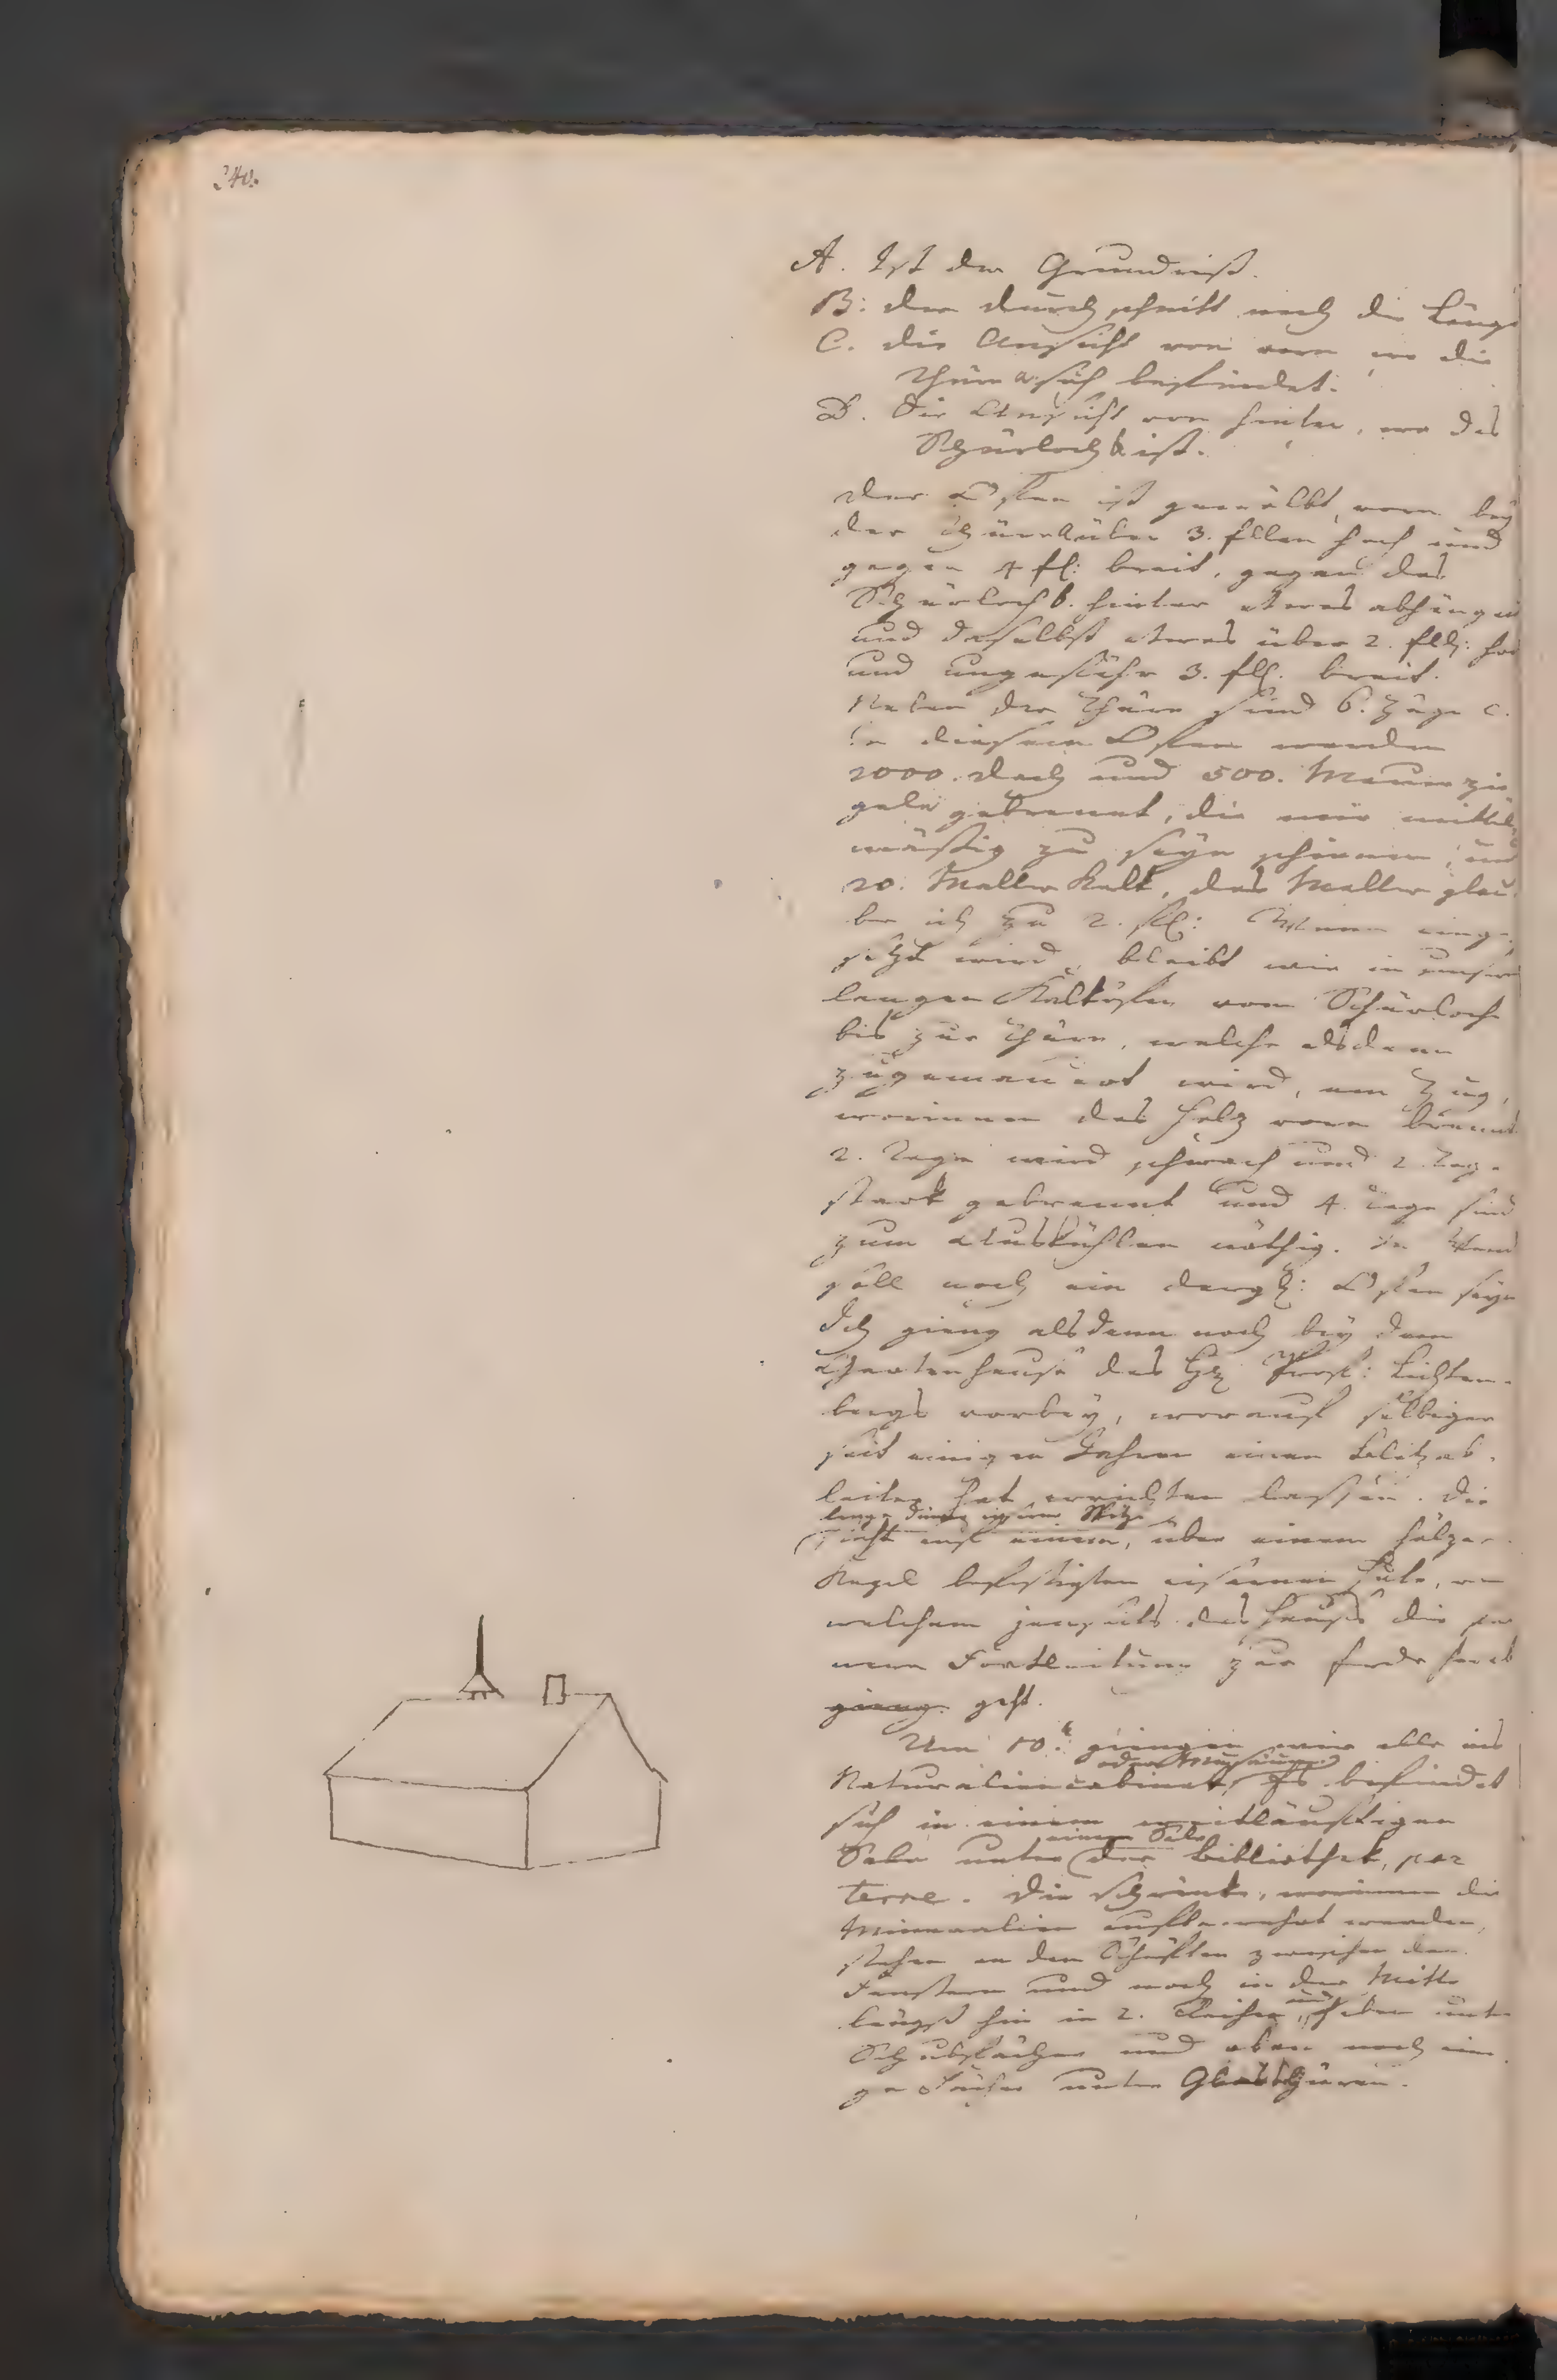 240.
A. Ist der Grundriß.
B: der durchschnitt nach die Länge
C. die Ansicht von vorn wo die
Thüre a sich befindet.
D. Die Ansicht von hinten, wo das
Schürloch b ist.
der Ofen ist gewölbt, vorn bey
der Thüre a über 3. Ellen hoch und
gegen 4 El: breit, gegen das
Schürloch b. hinten etwas abhängig
und daselbst etwas über 2. Ell: hoch
und ungefähr 3. Ell. breit.
Neben der Thüre sind 6. Züge c.
In diesem Ofen werden
2000. Dach und 500. Mauerzie
geln gebrannt, die mir mittel
mäßig zu seyn schienen, und
20. Malter Kalk, das Malter glau
be ich zu 2. Wenn einge
setzt wird, bleibt wie in unsern
langen Kalköfen vom Schürloche
bis zur Thüre, welche alsdenn
zugemauert wird, ein Zug,
worinnen das Holz vorn brennt
2. Tage wird schwach und 2 Tage
stark gebrannt und 4. Tage sind
zum Auskühlen nöthig. In
soll noch ein dergl: Ofen seyn
Ich gieng alsdenn noch bey dem
Gartenhause des Hr. Prof: Lichten-
bergs vorbey, worauf selbiger
seit einigen Jahren einen Blitzab-
leiter hat errichten lassen. Die
lange dünne eiserne Spitze
steht auf einem, über einem hölzer
Kegel befestigten eisernen Hute, von
welchem jenseits des Hauses die
Fortleitung zur Erde herab
gieng. geht.
Um 10. giengen wir alle ins
oder Musäum
Naturaliencabinet, Es befindet
sich in einem weitläuftigen
einem Sale
Sale unter der Bibliothek, par
terre. Die Schränke, worinnen die
Mineralien aufbewahrt werden,
stehen an den Schäften zwischen den
Fenstern und noch in der Mitte
und
längst hin in 2. Reihen, haben unten
Schubfächer und oben noch eini
ge Fächer unter Glasthüren.